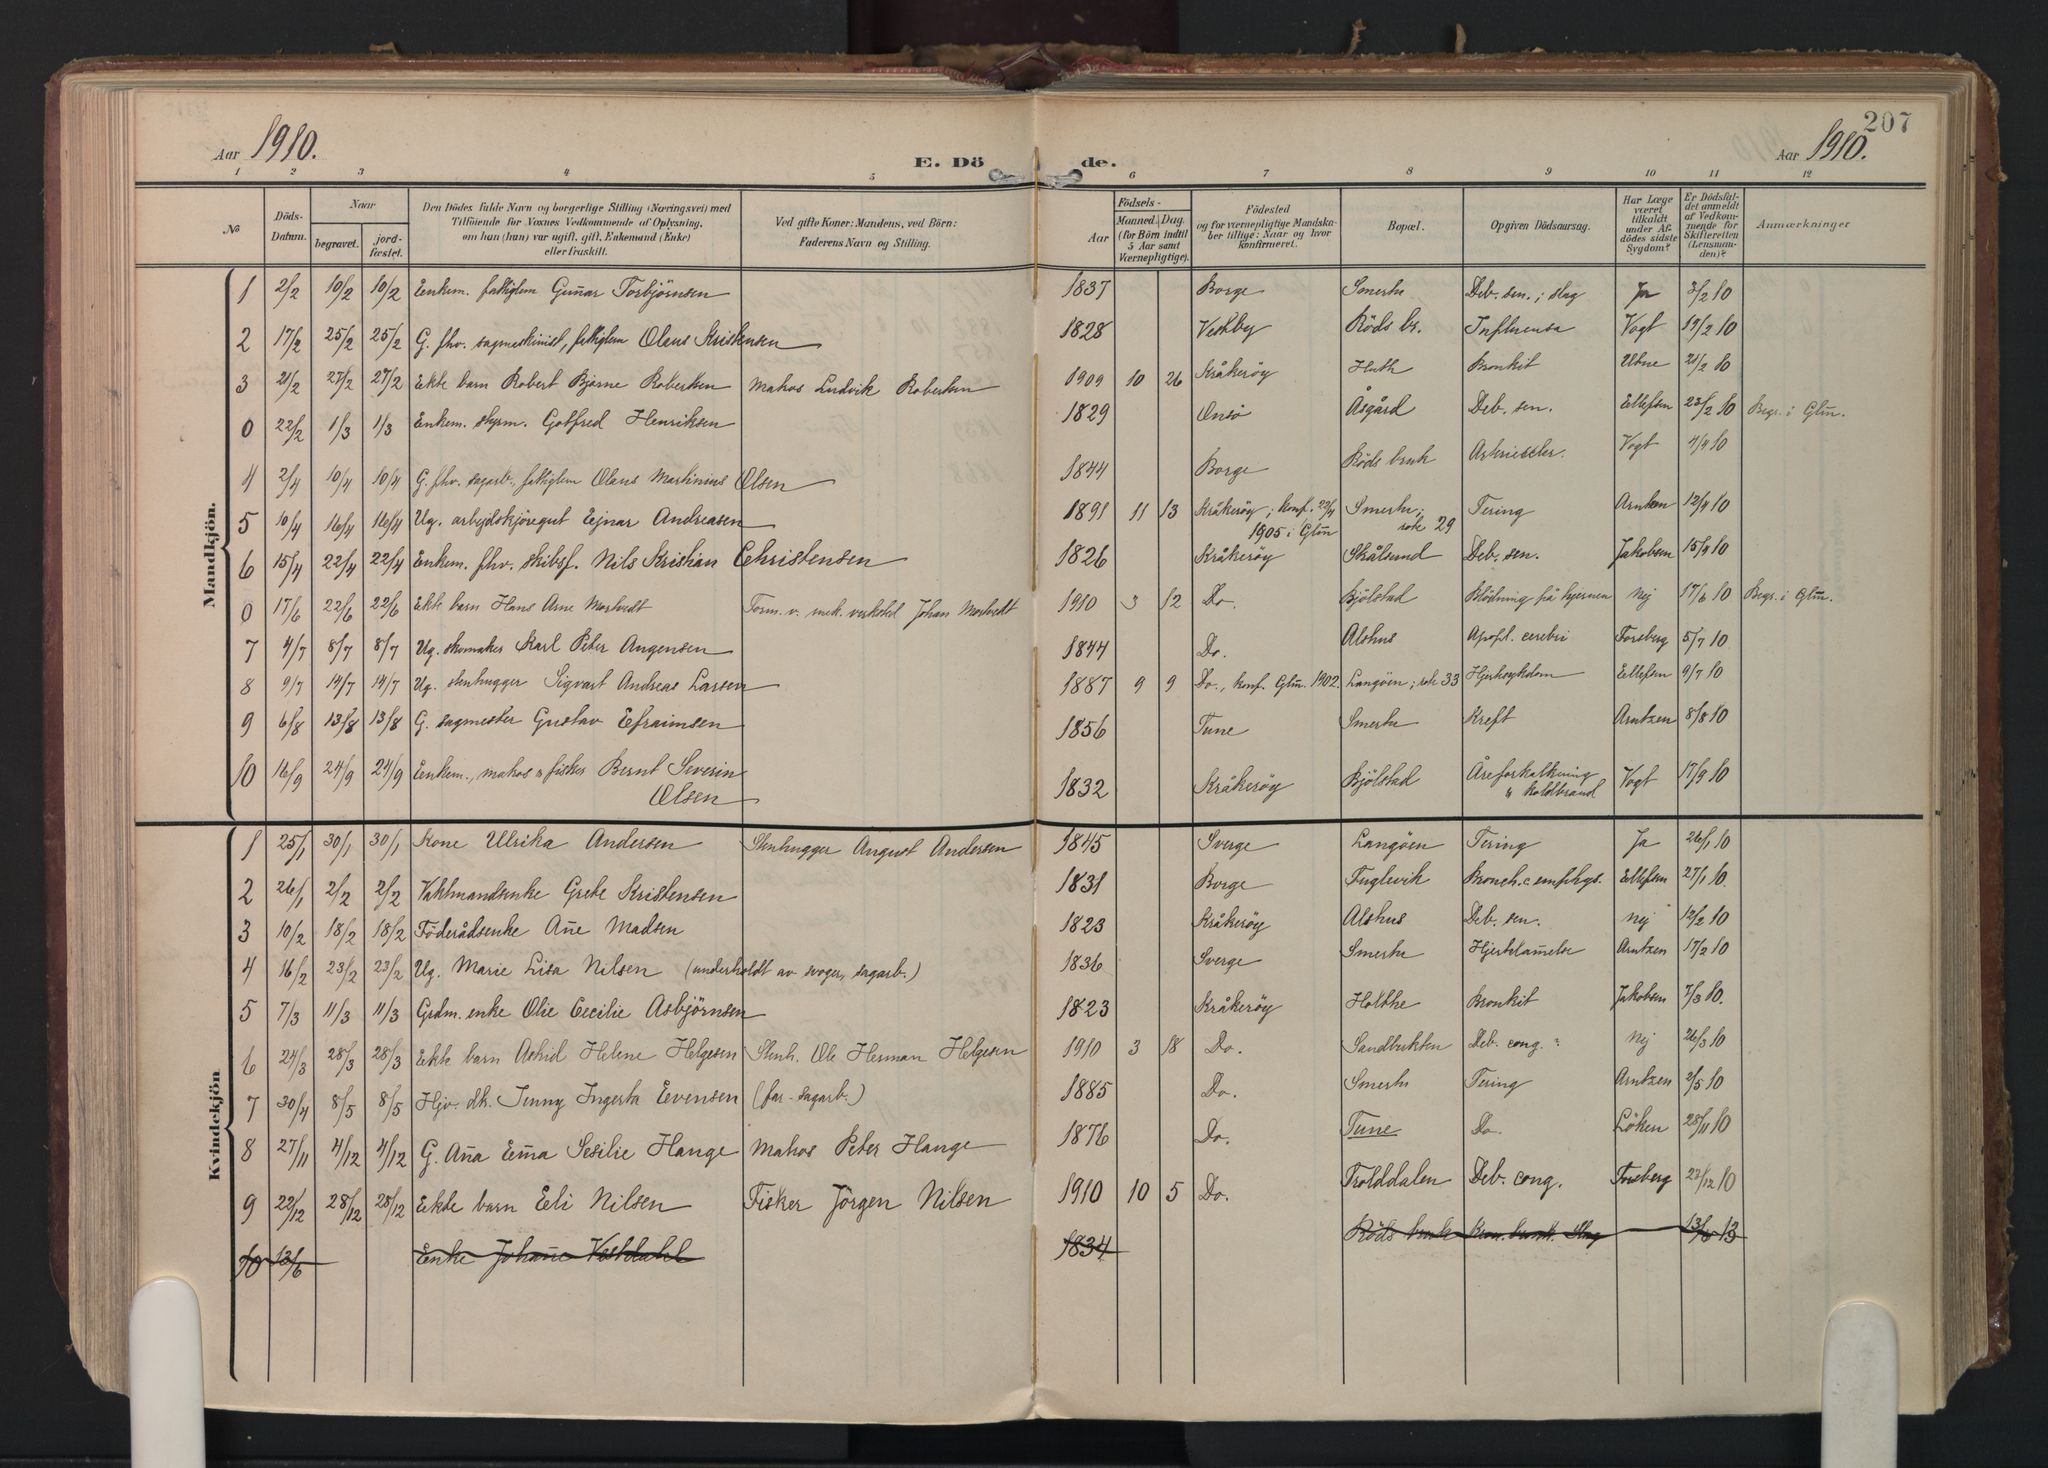 207
Aar 1910.
E. Döde.
Aar 1910.
1 2 3 4 5 6 7 8 9 10 11 12
No
Döds-Datum.
Naar
begravet.
jordfæstet.
Den Dödes fulde Navn og borgerlige Stilling (Næringsvei) med
Tilföiende for Voxnes Vedkommende af Oplysning,
om han (hun) var ugift, gift, Enkemand (Enke)
eller fraskilt.
Ved gifte Koner: Mandens, ved Börn:
Faderens Navn og Stilling.
Födsels-
Aar
Maaned. Dag.
(for Börn indtil
5 Aar samt
Værnepligtige).
Födested
og for værnepligtige Mandska-
ber tillige: Naar og hvor
konfirmeret.
Bopæl.
Opgiven Dödsaarsag.
Har Læge
været
tilkaldt
under Af-
dödes sidste
Sygdom?
Er Dödsfal-
det anmeldt
af Vedkom-
mende for
Skifteretten
(Lensman-
den)?
Anmærkninger
Mandkjön.
1 2/2 10/2 10/2 Enkem. fattiglem Guñar Torbjörnsen 1837 Borge Smertu Deb. sen.; slag Ja 3/2 10
2 17/2 25/2 25/2 G. fhv. sagmaskinist, fattiglem Olaus Kristensen 1828 Vestby Röds br. Influensa Vogt 19/2 10
3 21/2 27/2 27/2 Ekte barn Robert Bjarne Robertsen Matros Ludvik Robertsen 1909 10 26 Kråkeröy Huth Bronkit Utne 21/2 10
0 22/2 1/3 1/3 Enkem. styrm. Gotfred Henriksen 1829 Onsö Åsgård Deb. sen. Ellefsen 23/2 10 Begr. i Glm.
4 2/4 10/4 10/4 G. fhv. sagarb., fattiglem Olaus Martinius Olsen 1844 Borge Röds bruk Vogt 4/4 10
5 10/4 16/4 16/4 Ug. arbejdskjöregut Ejnar Andreasen 1891 11 13 Kråkeröy; konf. 22/4 1905 i Glm Smertu; rote 29 Tering Arntzen 12/4 10
6 15/4 22/4 22/4 Enkem. fhv. skibsf. Nils Kristian Christensen 1826 Kråkeröy Skålsund Deb. sen. Jakobsen 15/4 10
0 17/6 22/6 22/6 Ekte barn Hans Arne Mostvedt Form. v. mek. verksted Johan Mostvedt 1910 3 12 Do. Bjölstad Blödning på hjernen Nej 17/6 10 Begr. i Glm.
7 4/7 8/7 8/7 Ug. skomaker Karl Peter Angensen 1844 Do. Alshus Apopl. cerebri Forsberg 5/7 10
8 9/7 14/7 14/7 Ug. stenhugger Sigvart Andreas Larsen 1887 9 9 Do., konf. Glm. 1902. Langöen; rote 33 Hjertesykdom Ellefsen 9/7 10
9 6/8 13/8 13/8 G. sagmester Gustav Efraimsen 1856 Tune Smertu Kreft Arntzen 8/8 10
10 16/9 24/9 24/9 Enkem., matros & fisker Bernt Severin Olsen 1832 Kråkeröy Bjölstad Åreforkalkning & koldbrand Vogt 17/9 10
Kvindekjön
1 25/1 30/1 30/1 Kone Ulrika Andersen Stenhugger August Andersen 1845 Sverge Langöen Tering Ja 26/1 10
2 26/1 2/2 2/2 Vaktmandsenke Grete Kristensen 1831 Borge Fuglevik Bronch. c. emphys. Ellefsen 27/1 10.
3 10/2 18/2 18/2 Föderådsenke Añe Madsen 1823 Kråkeröy Alshus Deb. sen. Nej 12/2 10
4 16/2 23/2 23/2 Ug. Marie Lisa Nilsen (underholdt av svoger, sagarb.) 1836 Sverge Smertu Hjertelam̃else Arntzen 17/2 10
5 7/3 11/3 11/3 Grdm. enke Olie Cecilie Asbjörnsen 1823 Kråkeröy Holthe Bronkit Jakobsen 7/3 10.
6 24/3 28/3 28/3 Ekte barn Astrid Helene Helgesen Stenh. Ole Herman Helgesen 1910 3 18 Do. Sandbukten Deb. cong. Nej 26/3 10
7 30/4 8/5 8/5 Hjv. dt. Jenny Ingerta Evensen (far - sagarb.) 1885 Do. Smertu Tering Arntzen 2/5 10
8 27/11 4/12 4/12 G. Aña Em̃a Sesilie Hange Matros Peter Hange 1876 Do. Tune Do. Löken 28/11 10
9 22/12 28/12 28/12 Ekte barn Eli Nilsen Fisker Jörgen Nilsen 1910 10 5 Do. Trolddalen Deb. cong. Forsberg 23/12 10
10 13/6 Enke Johañe Vestdahl 1834 Röds bruk Slag 13/6 13